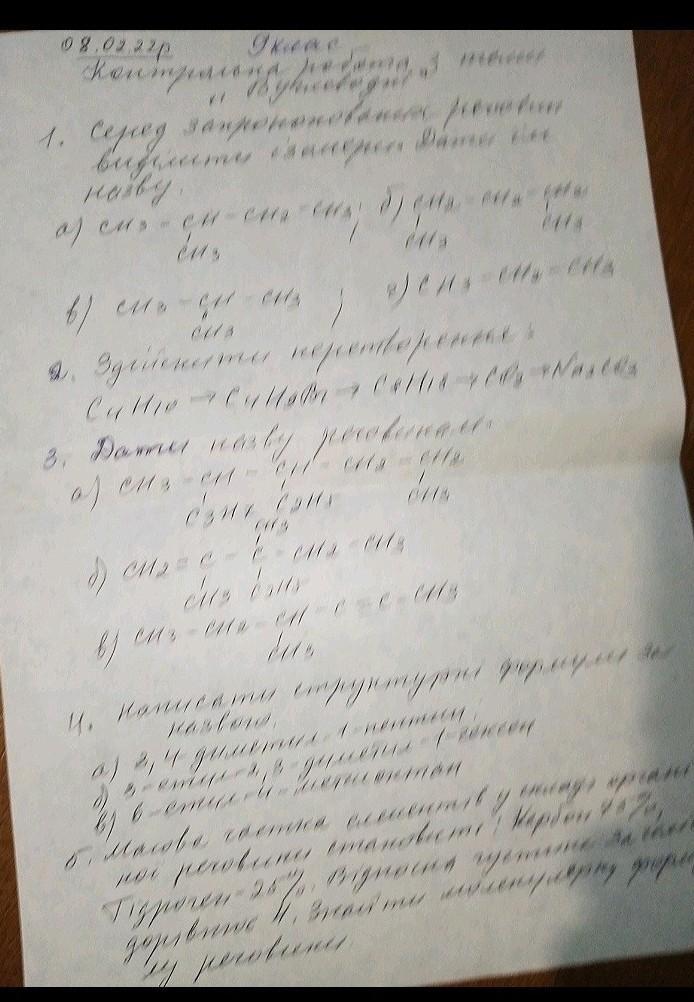 08.02.22р 9 клас
Контрольна робота з теми
"Вуглеводні"
1. Серед запропонованих речовин
виділити ізомери. Дати їм
назву.
а) CH3 - CH - CH2 - CH3; б) CH2 - CH2 - CH2
CH3 CH3 CH3
в) CH3 - CH - CH3 ; г) CH3 - CH2 - CH3
CH3
2. Здійснити перетворення:
C4H10 → C4H9Br → C8H18 → CO2 → Na2CO3
3. Дати назву речовинам:
а) CH3 - CH - CH - CH2 - CH2
C3H7 C2H5 CH3
CH3
б) CH2 = C - C - CH2 - CH3
CH3 C2H5
в) CH3 - CH2 - CH - C ≡ C - CH3
CH3
4. Написати структурні формули за
назвою:
а) 3,4-диметил-1-пентин;
б) 3-етил-2,3-диметил-1-гексен
в) 6-етил-4-метилоктан
5. Масова частка елементів у складі органі
ної речовини становить: Карбон 75%,
Гідроген - 25%. Відносна густина за гелієм
дорівнює 4. Знайти молекулярну форму
лу речовини.